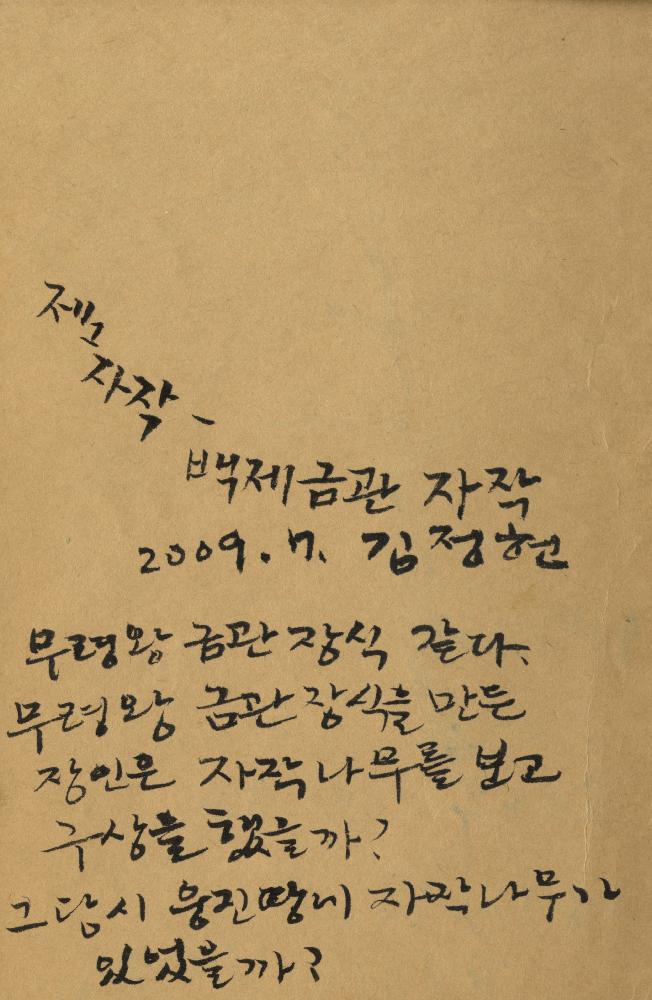 제고
자작 -
백제금관 자작
2009. 7. 김정현
무령왕 금관 장식 같다.
무령왕 금관 장식을 만든
장인은 자작나무를 보고
구상을 했을까?
그 당시 웅진땅에 자작나무가
있었을까?